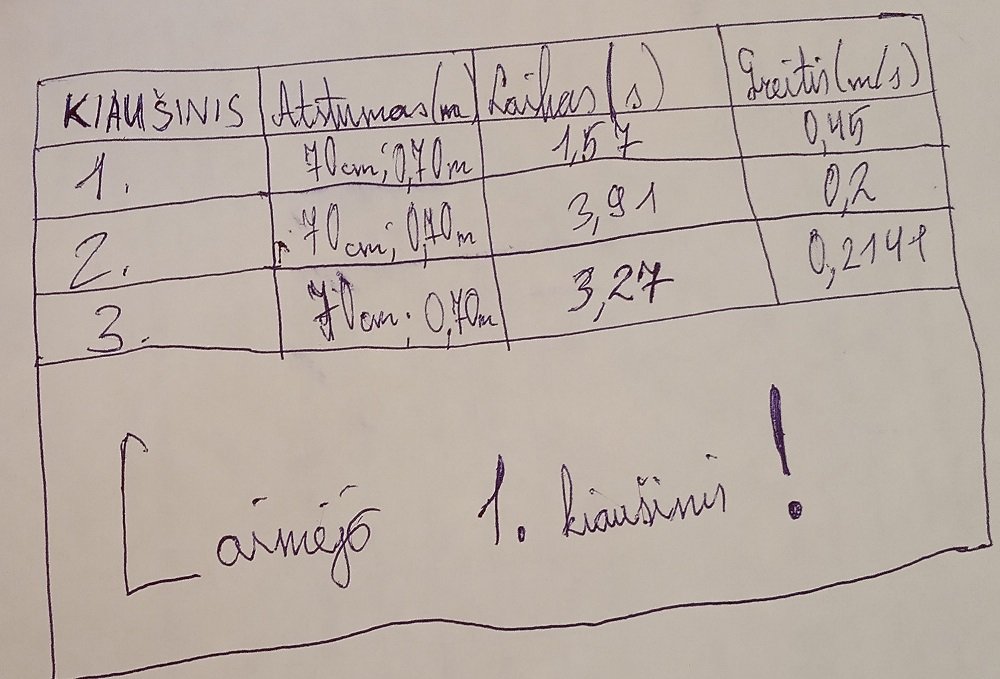 KIAUŠINIS Atstumas(m) Laikas(s) Greitis(m/s)
1. 70cm; 0,70m 1,57 0,45
2. 70cm; 0,70m 3,91 0,2
3. 70cm; 0,70m 3,27 0,2141
Laimėjo 1. kiaušinis!